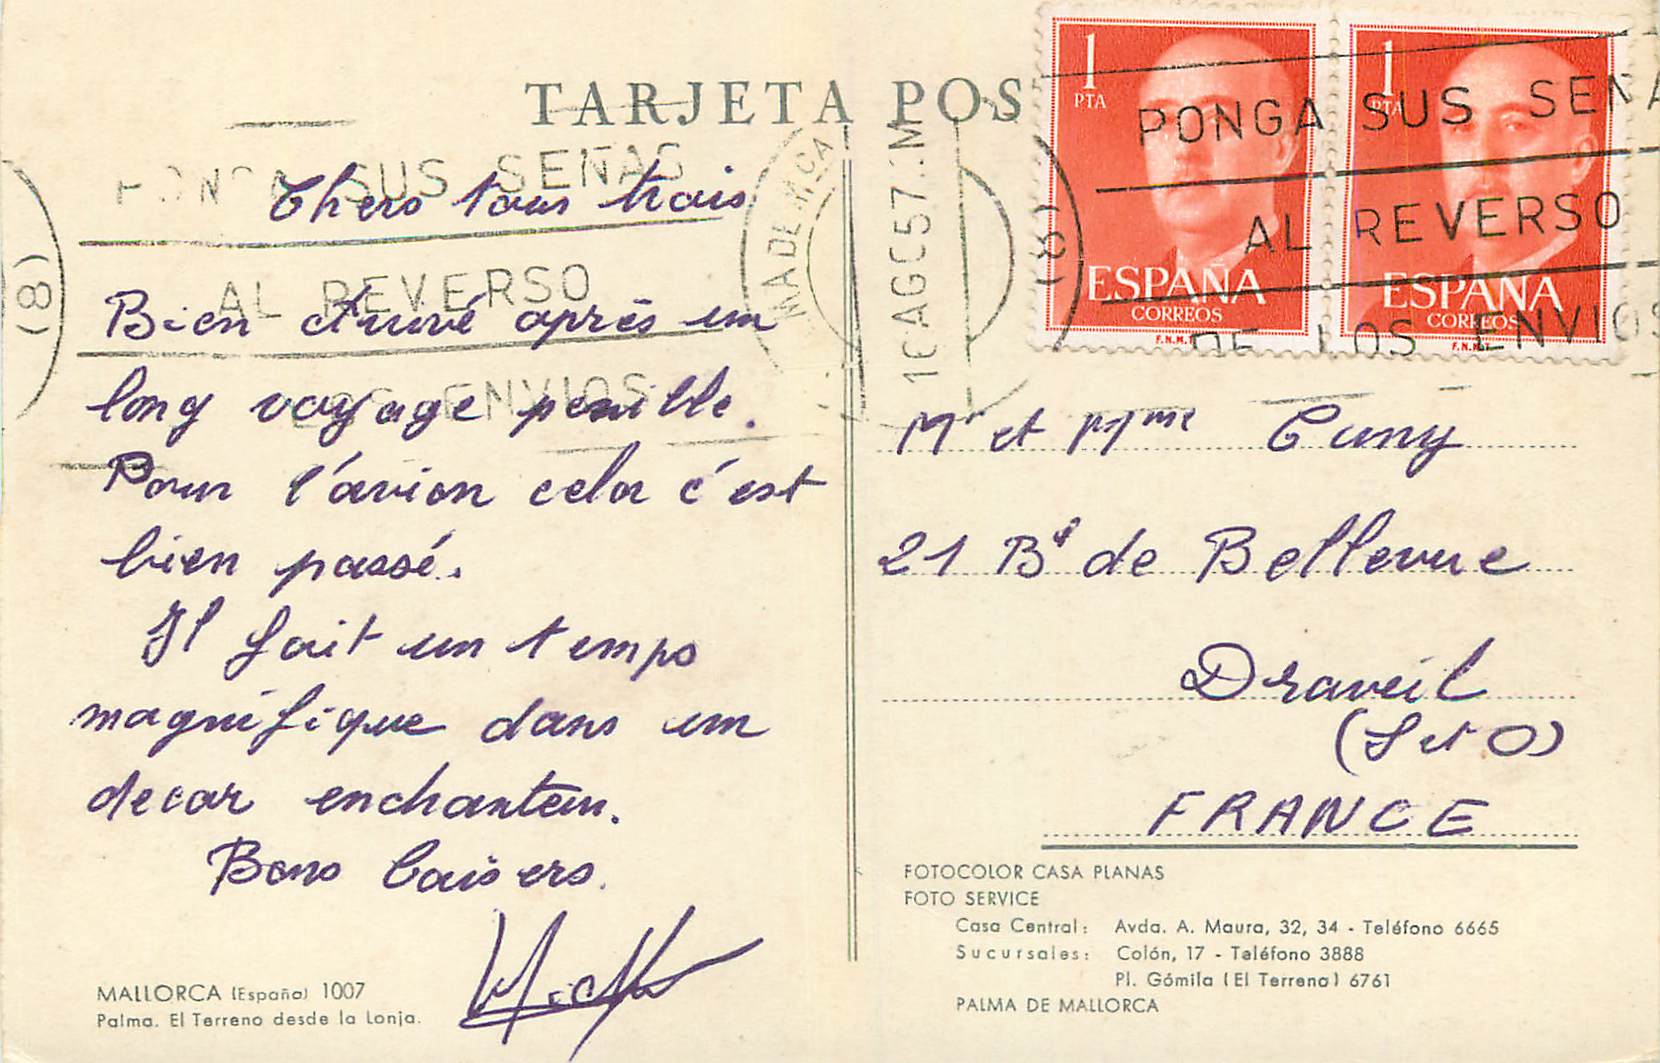 TARJETA POS
1
PTA
ESPAÑA
CORREOS
F.N.M.T.
1
PTA
ESPAÑA
CORREOS
F.N.M.T.
PONGA SUS SEÑA
AL REVERSO
DE LOS ENVIOS
(8)
SUS SEÑAS
AL REVERSO
ENVIOS
(8)
Chers tous trois
Bien arrivé après un
long voyage penille.
Pour l'avion cela c'est
bien passé.
Il fait un temps
magnifique dans un
decor enchanteur.
Bons baisers.
MALLORCA (España) 1007
Palma. El Terreno desde la Lonja.
Mr et Mme Cuny
21 Bd de Bellevue
Draveil
(S et O)
FRANCE
FOTOCOLOR CASA PLANAS
FOTO SERVICE
Casa Central: Avda. A. Maura, 32, 34 - Teléfono 6665
Sucursales: Colón, 17 - Teléfono 3888
Pl. Gómila (El Terreno) 6761
PALMA DE MALLORCA